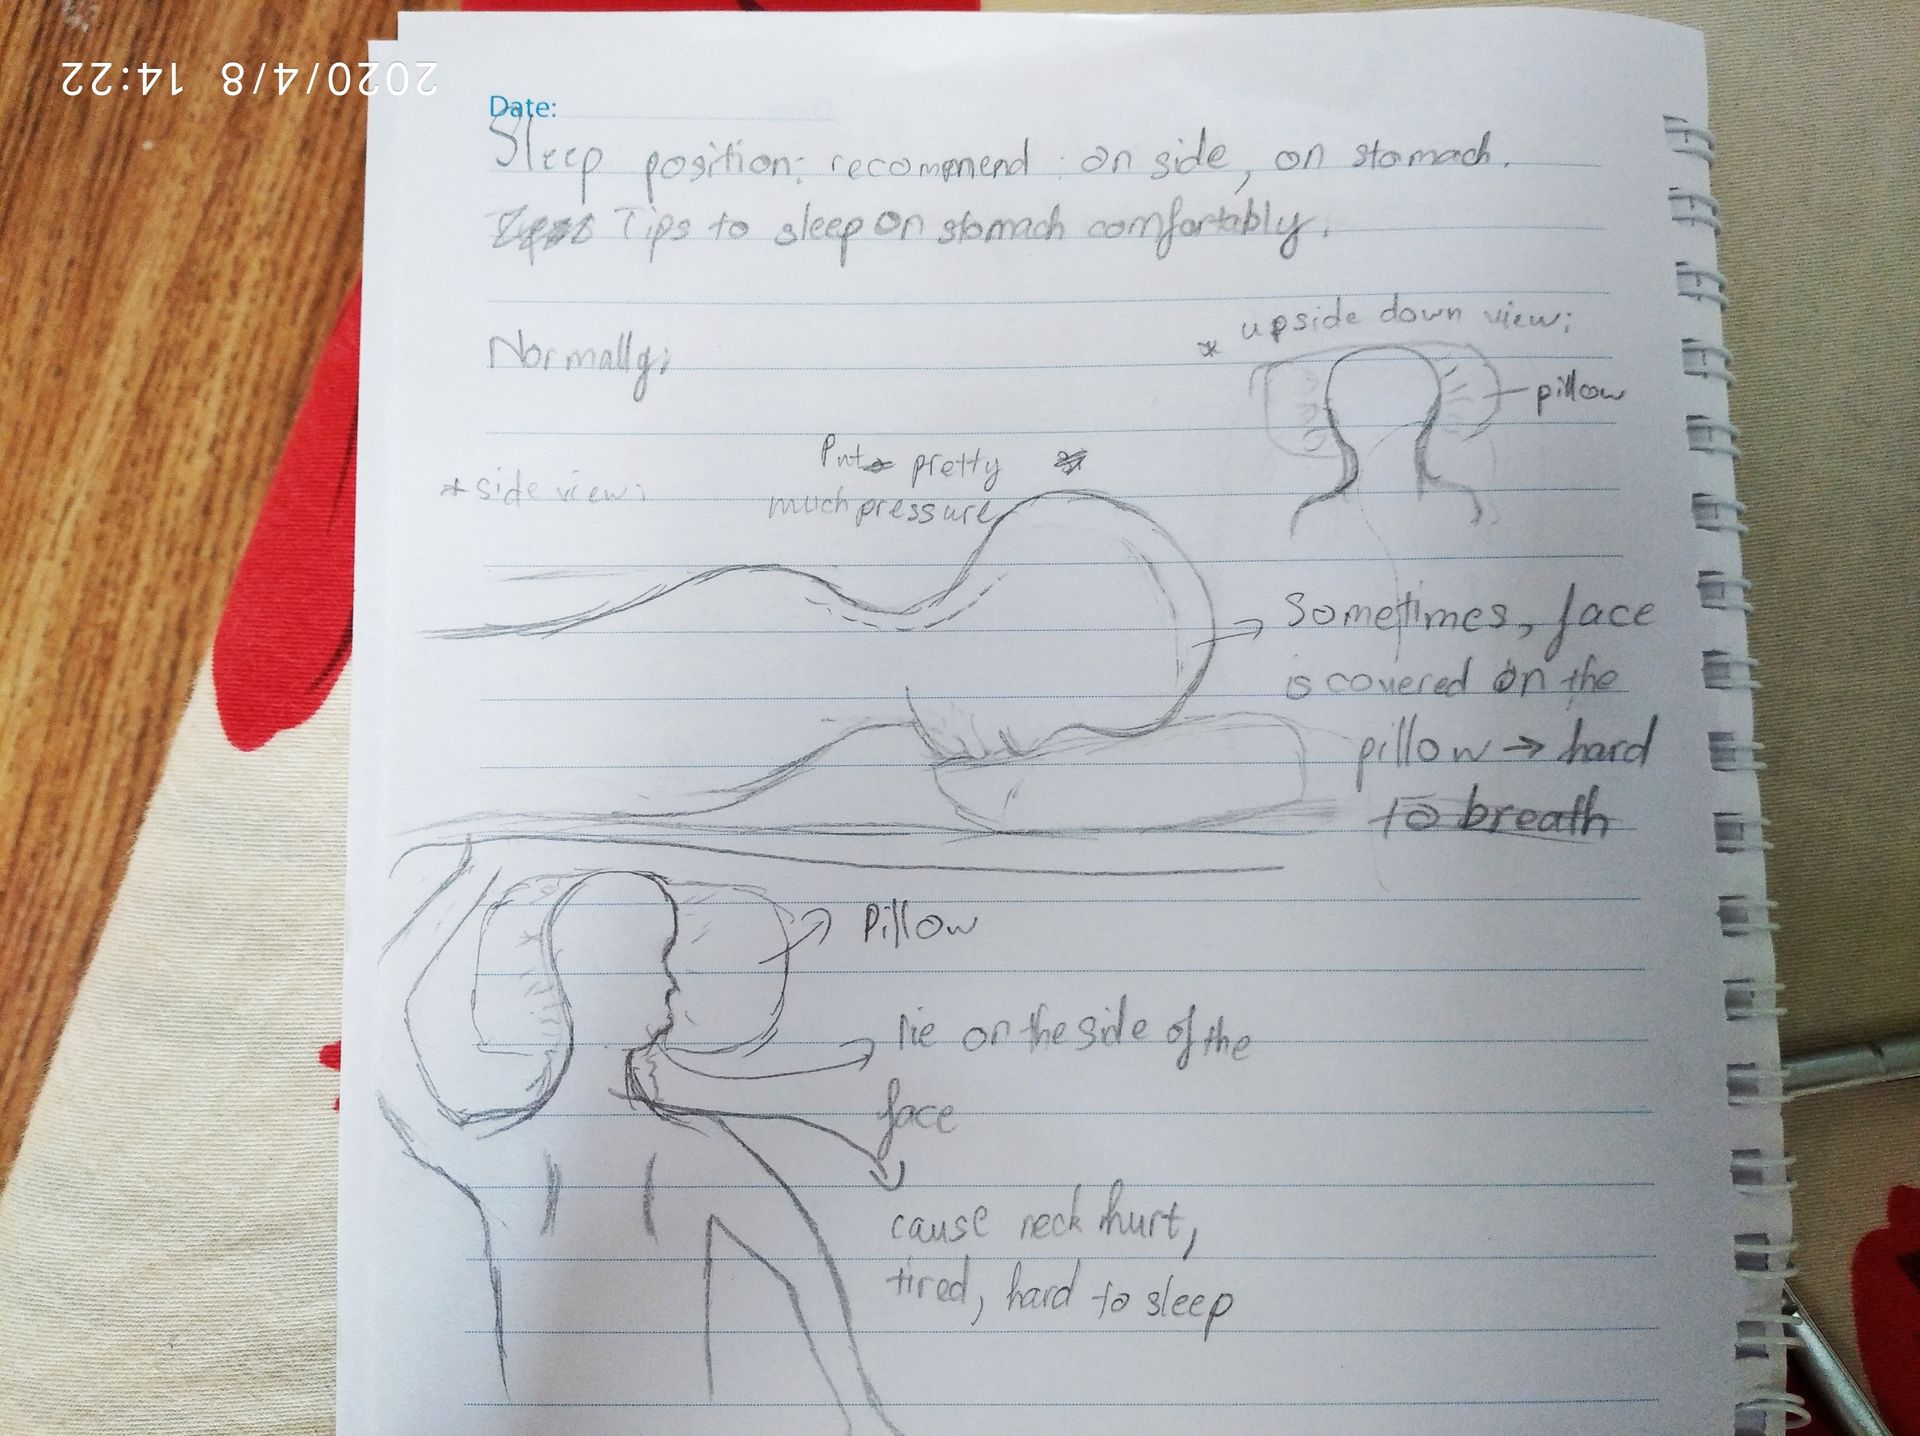 2020/4/8 14:22
Date:
Sleep position: recommend: on side, on stomach.
Tips to sleep on stomach comfortably.
* upside down view:
Normally:
pillow
Put pretty
* side view:
much pressure
Sometimes, face
is covered on the
pillow → hard
to breath
Pillow
lie on the side of the
face
cause neck hurt,
tired, hard to sleep